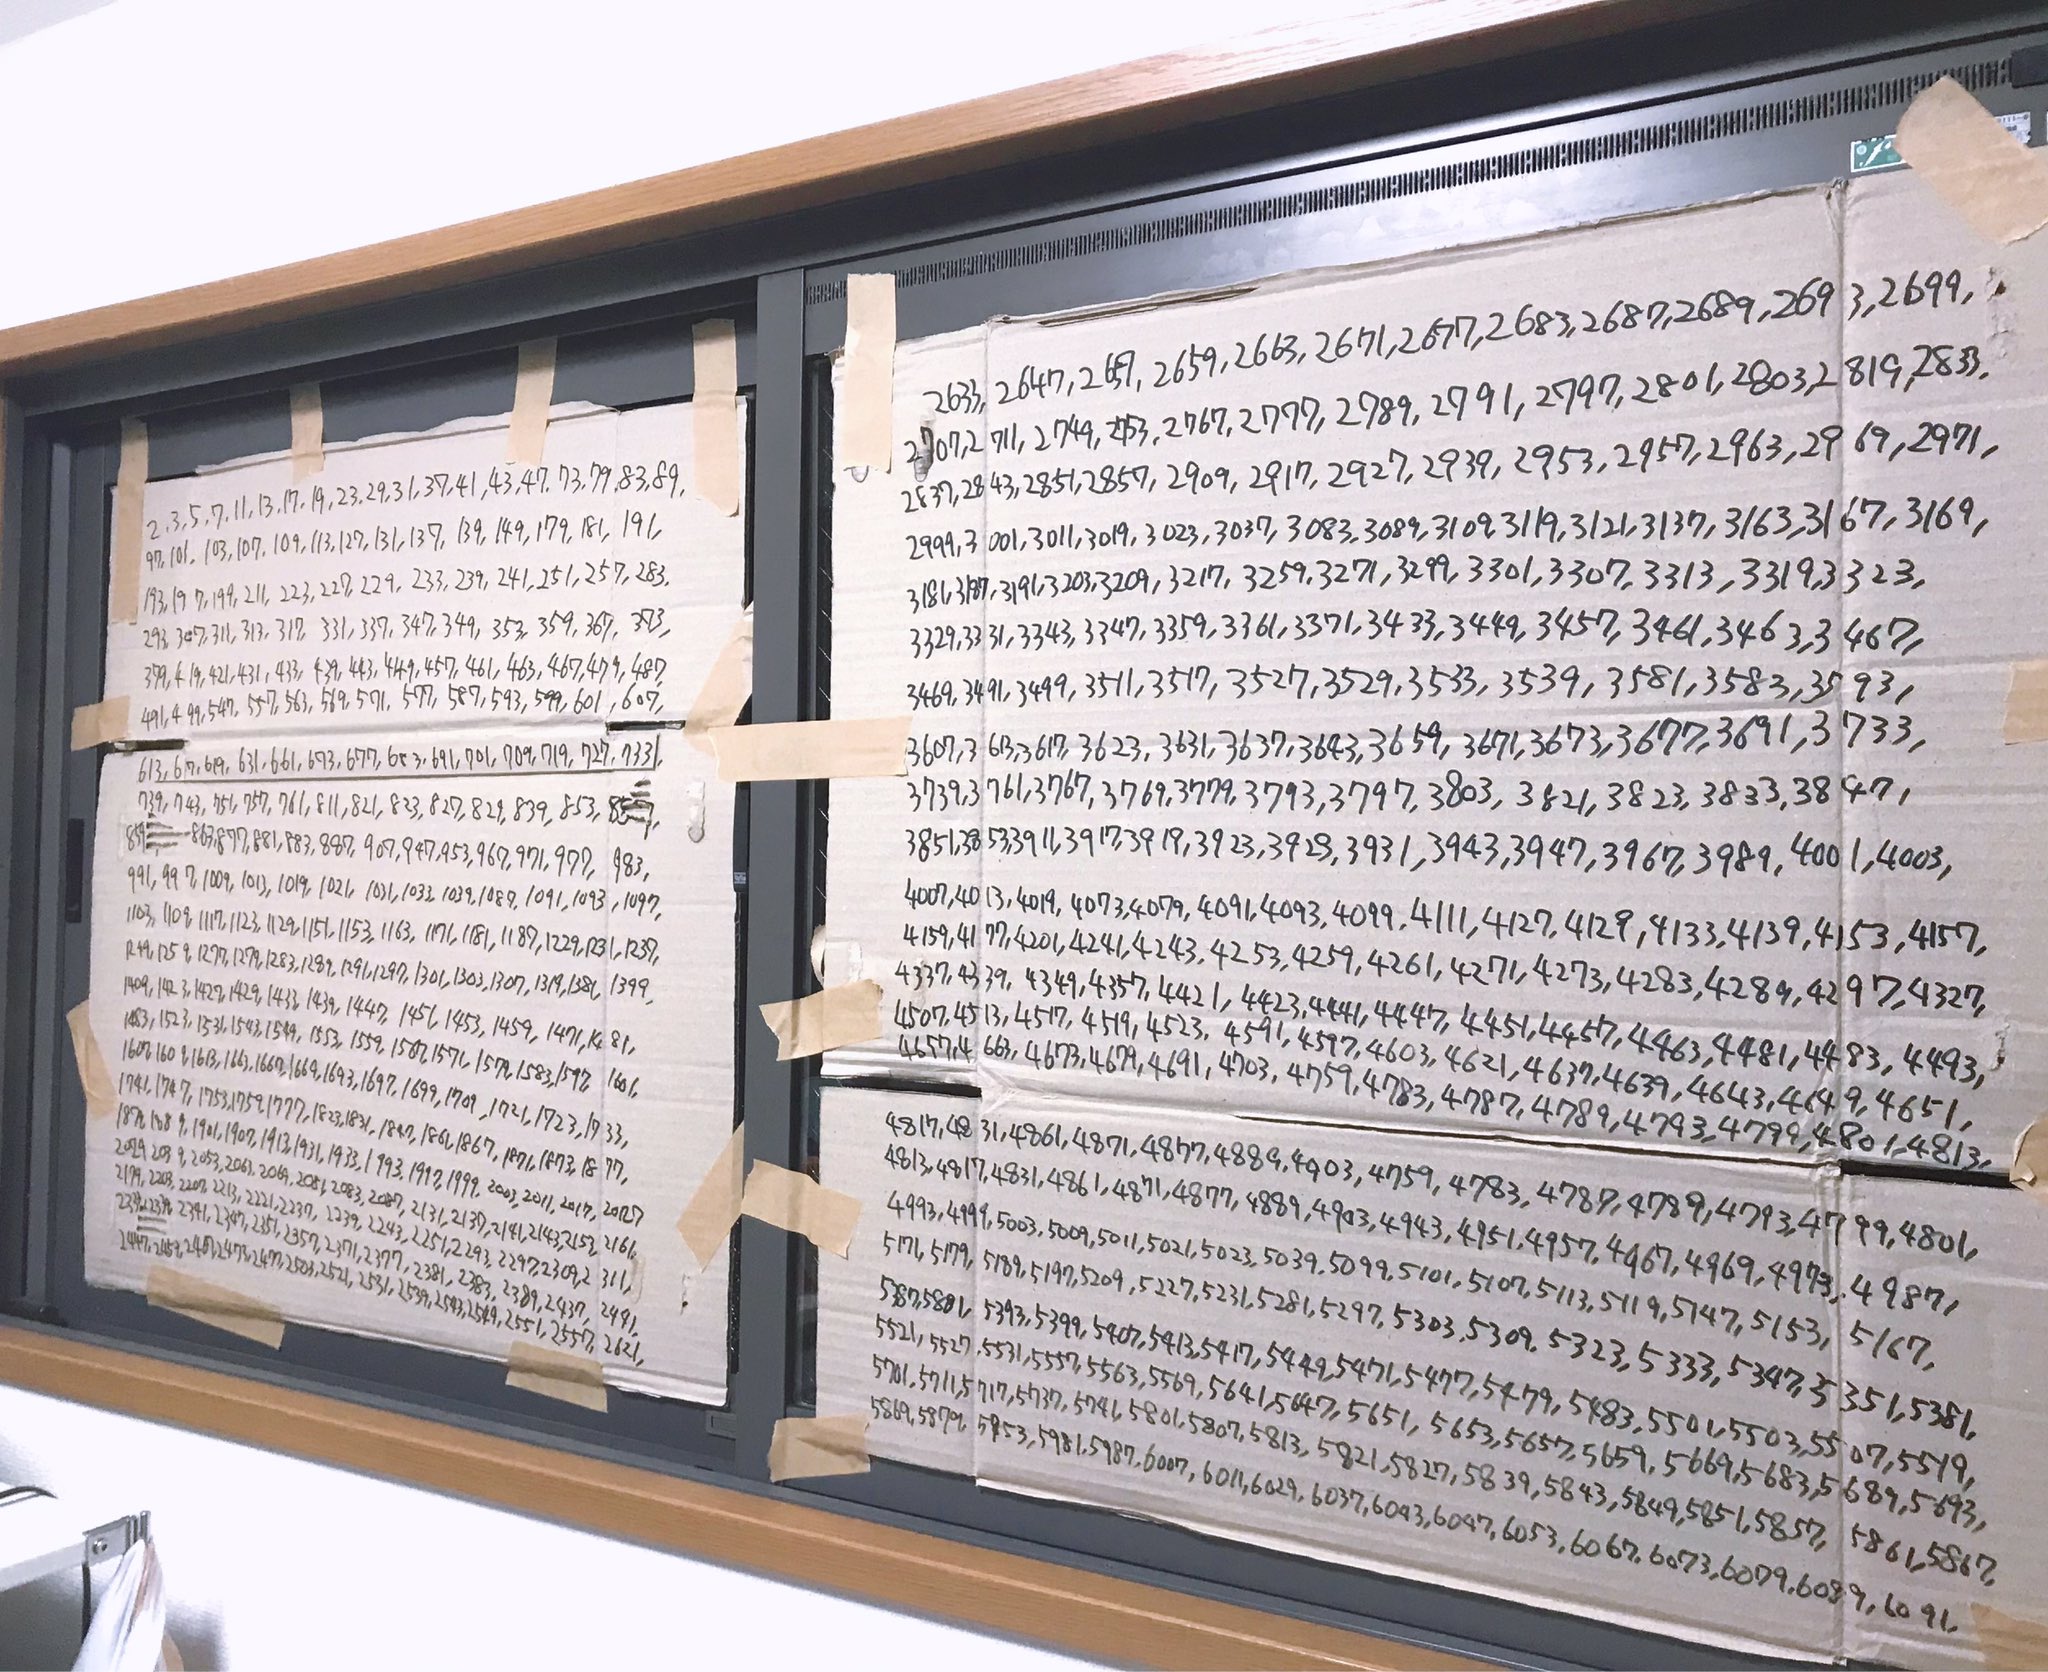 2,3,5,7,11,13,17,19,23,29,31,37,41,43,47,73,79,83,89,
97,101,103,107,109,113,127,131,137,139,149,179,181,191,
193,197,199,211,223,227,229,233,239,241,251,257,283,
293,307,311,313,317,331,337,347,349,353,359,367,373,
379,419,421,431,433,439,443,449,457,461,463,467,479,487,
491,499,547,557,563,569,571,577,587,593,599,601,607,
613,617,619,631,661,673,677,683,691,701,709,719,727,733,
739,743,751,757,761,811,821,823,827,829,839,853,857,
859 863,877,881,883,887,907,947,953,967,971,977,983,
991,997,1009,1013,1019,1021,1031,1033,1039,1087,1091,1093,1097,
1103,1109,1117,1123,1129,1151,1153,1163,1171,1181,1187,1229,1231,1237,
1249,1259,1277,1279,1283,1289,1291,1297,1301,1303,1307,1319,1381,1399,
1409,1423,1427,1429,1433,1439,1447,1451,1453,1459,1471,1481,
1483,1523,1531,1543,1549,1553,1559,1567,1571,1579,1583,1597,1601,
1607,1609,1613,1663,1667,1669,1693,1697,1699,1709,1721,1723,1733,
1741,1747,1753,1759,1777,1823,1831,1847,1861,1867,1871,1873,1877,
1879,1889,1901,1907,1913,1931,1933,1993,1997,1999,2003,2011,2017,2027
2029,2039,2053,2063,2069,2081,2083,2087,2131,2137,2141,2143,2153,2161,
2179,2203,2207,2213,2221,2237,2239,2243,2251,2293,2297,2309,2311,
2341,2347,2351,2357,2371,2377,2381,2383,2389,2437,2441,
2447,2459,2467,2473,2477,2503,2521,2531,2539,2543,2549,2551,2557,2621,
2633,2647,2657,2659,2663,2671,2677,2683,2687,2689,2693,2699,
2707,2711,2749,2753,2767,2777,2789,2791,2797,2801,2803,2819,2833,
2837,2843,2851,2857,2909,2917,2927,2939,2953,2957,2963,2969,2971,
2999,3001,3011,3019,3023,3037,3083,3089,3109,3119,3121,3137,3163,3167,3169,
3181,3187,3191,3203,3209,3217,3259,3271,3299,3301,3307,3313,3319,3323,
3329,3331,3343,3347,3359,3361,3371,3433,3449,3457,3461,3463,3467,
3469,3491,3499,3511,3517,3527,3529,3533,3539,3581,3583,3593,
3607,3613,3617,3623,3631,3637,3643,3659,3671,3673,3677,3691,3733,
3739,3761,3767,3769,3779,3793,3797,3803,3821,3823,3833,3847,
3851,3853,3911,3917,3919,3923,3929,3931,3943,3947,3967,3989,4001,4003,
4007,4013,4019,4073,4079,4091,4093,4099,4111,4127,4129,4133,4139,4153,4157,
4159,4177,4201,4241,4243,4253,4259,4261,4271,4273,4283,4289,4297,4327,
4337,4339,4349,4357,4421,4423,4441,4447,4451,4457,4463,4481,4483,4493,
4507,4513,4517,4519,4523,4591,4597,4603,4621,4637,4639,4643,4649,4651,
4657,4663,4673,4679,4691,4703,4759,4783,4787,4789,4793,4799,4801,4813,
4817,4831,4861,4871,4877,4889,4903,4759,4783,4787,4789,4793,4799,4801,
4813,4817,4831,4861,4871,4877,4889,4903,4943,4951,4957,4967,4969,4973,4987,
4993,4999,5003,5009,5011,5021,5023,5039,5099,5101,5107,5113,5119,5147,5153,5167,
5171,5179,5189,5197,5209,5227,5231,5281,5297,5303,5309,5323,5333,5347,5351,5381,
5387,5393,5399,5407,5413,5417,5449,5471,5477,5479,5483,5501,5503,5507,5519,
5521,5527,5531,5557,5563,5569,5641,5647,5651,5653,5657,5659,5669,5683,5689,5693,
5701,5711,5717,5737,5741,5801,5807,5813,5821,5827,5839,5843,5849,5851,5857,5861,5867,
5869,5879,5953,5981,5987,6007,6011,6029,6037,6043,6047,6053,6067,6073,6079,6089,6091,